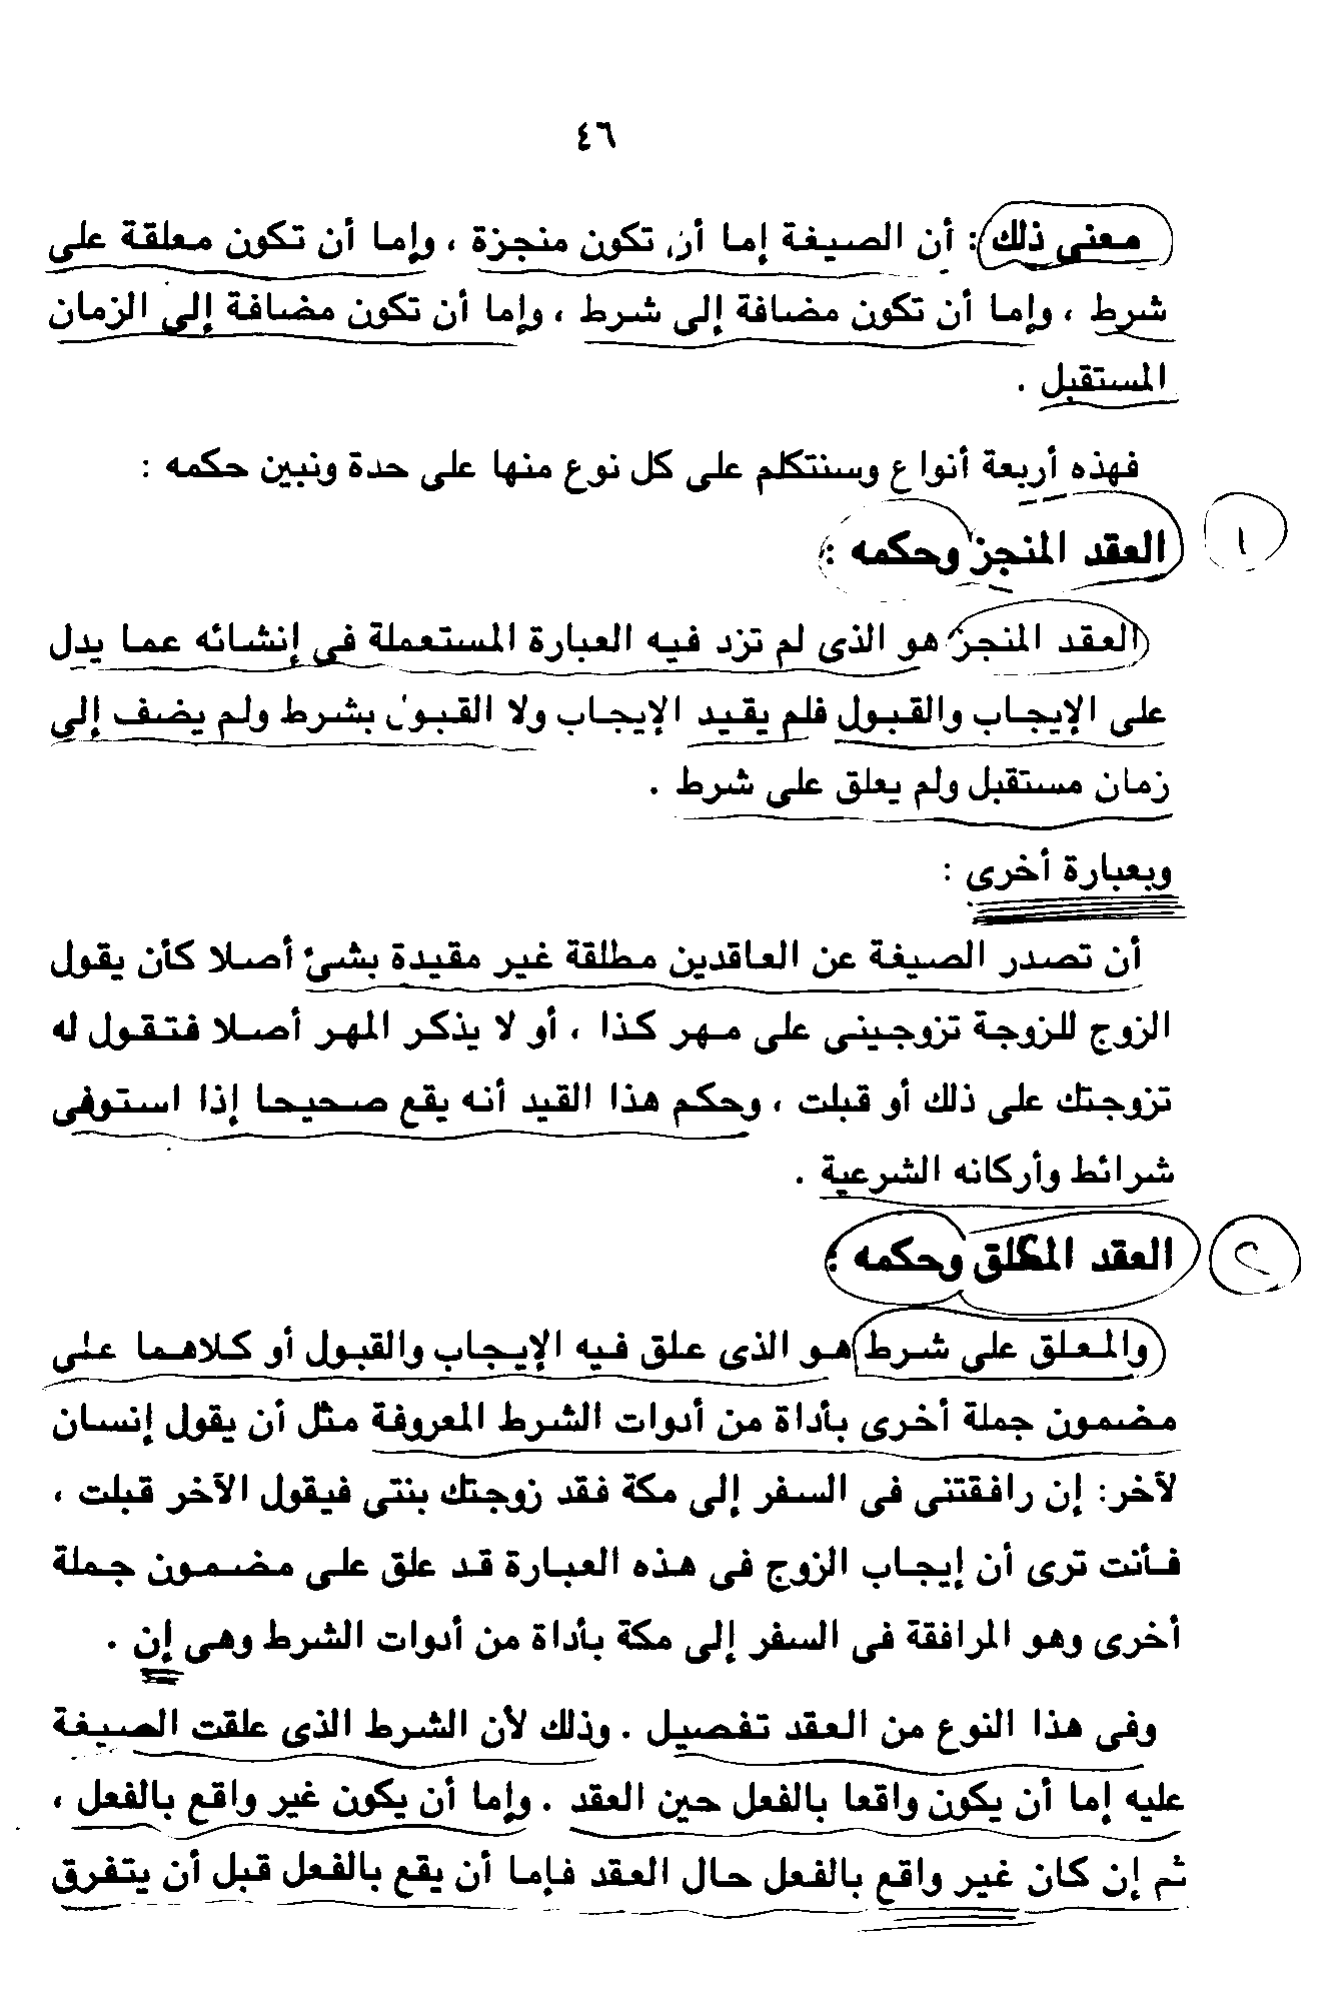 ٤٦
معنى ذلك : أن الصيغة إما أن تكون منجزة ، وإما أن تكون معلقة على
شرط ، وإما أن تكون مضافة إلى شرط ، وإما أن تكون مضافة إلى الزمان
المستقبل .
فهذه أربعة أنواع وسنتكلم على كل نوع منها على حدة ونبين حكمه :
١
العقد المنجز وحكمه :
العقد المنجز هو الذى لم تزد فيه العبارة المستعملة فى إنشائه عما يدل
على الإيجاب والقبول فلم يقيد الإيجاب ولا القبول بشرط ولم يضف إلى
زمان مستقبل ولم يعلق على شرط .
وبعبارة أخرى :
أن تصدر الصيغة عن العاقدين مطلقة غير مقيدة بشئ أصلا كأن يقول
الزوج للزوجة تزوجينى على مهر كذا ، أو لا يذكر المهر أصلا فتقول له
تزوجتك على ذلك أو قبلت ، وحكم هذا القيد أنه يقع صحيحا إذا استوفى
شرائط وأركانه الشرعية .
٢
العقد المعلق وحكمه :
والمعلق على شرط هو الذى علق فيه الإيجاب والقبول أو كلاهما على
مضمون جملة أخرى بأداة من أدوات الشرط المعروفة مثل أن يقول إنسان
لآخر: إن رافقتنى فى السفر إلى مكة فقد زوجتك بنتى فيقول الآخر قبلت ،
فأنت ترى أن إيجاب الزوج فى هذه العبارة قد علق على مضمون جملة
أخرى وهو المرافقة فى السفر إلى مكة بأداة من أدوات الشرط وهى إن .
وفى هذا النوع من العقد تفصيل . وذلك لأن الشرط الذى علقت الصيغة
عليه إما أن يكون واقعا بالفعل حين العقد . وإما أن يكون غير واقع بالفعل ،
ثم إن كان غير واقع بالفعل حال العقد فإما أن يقع بالفعل قبل أن يتفرق